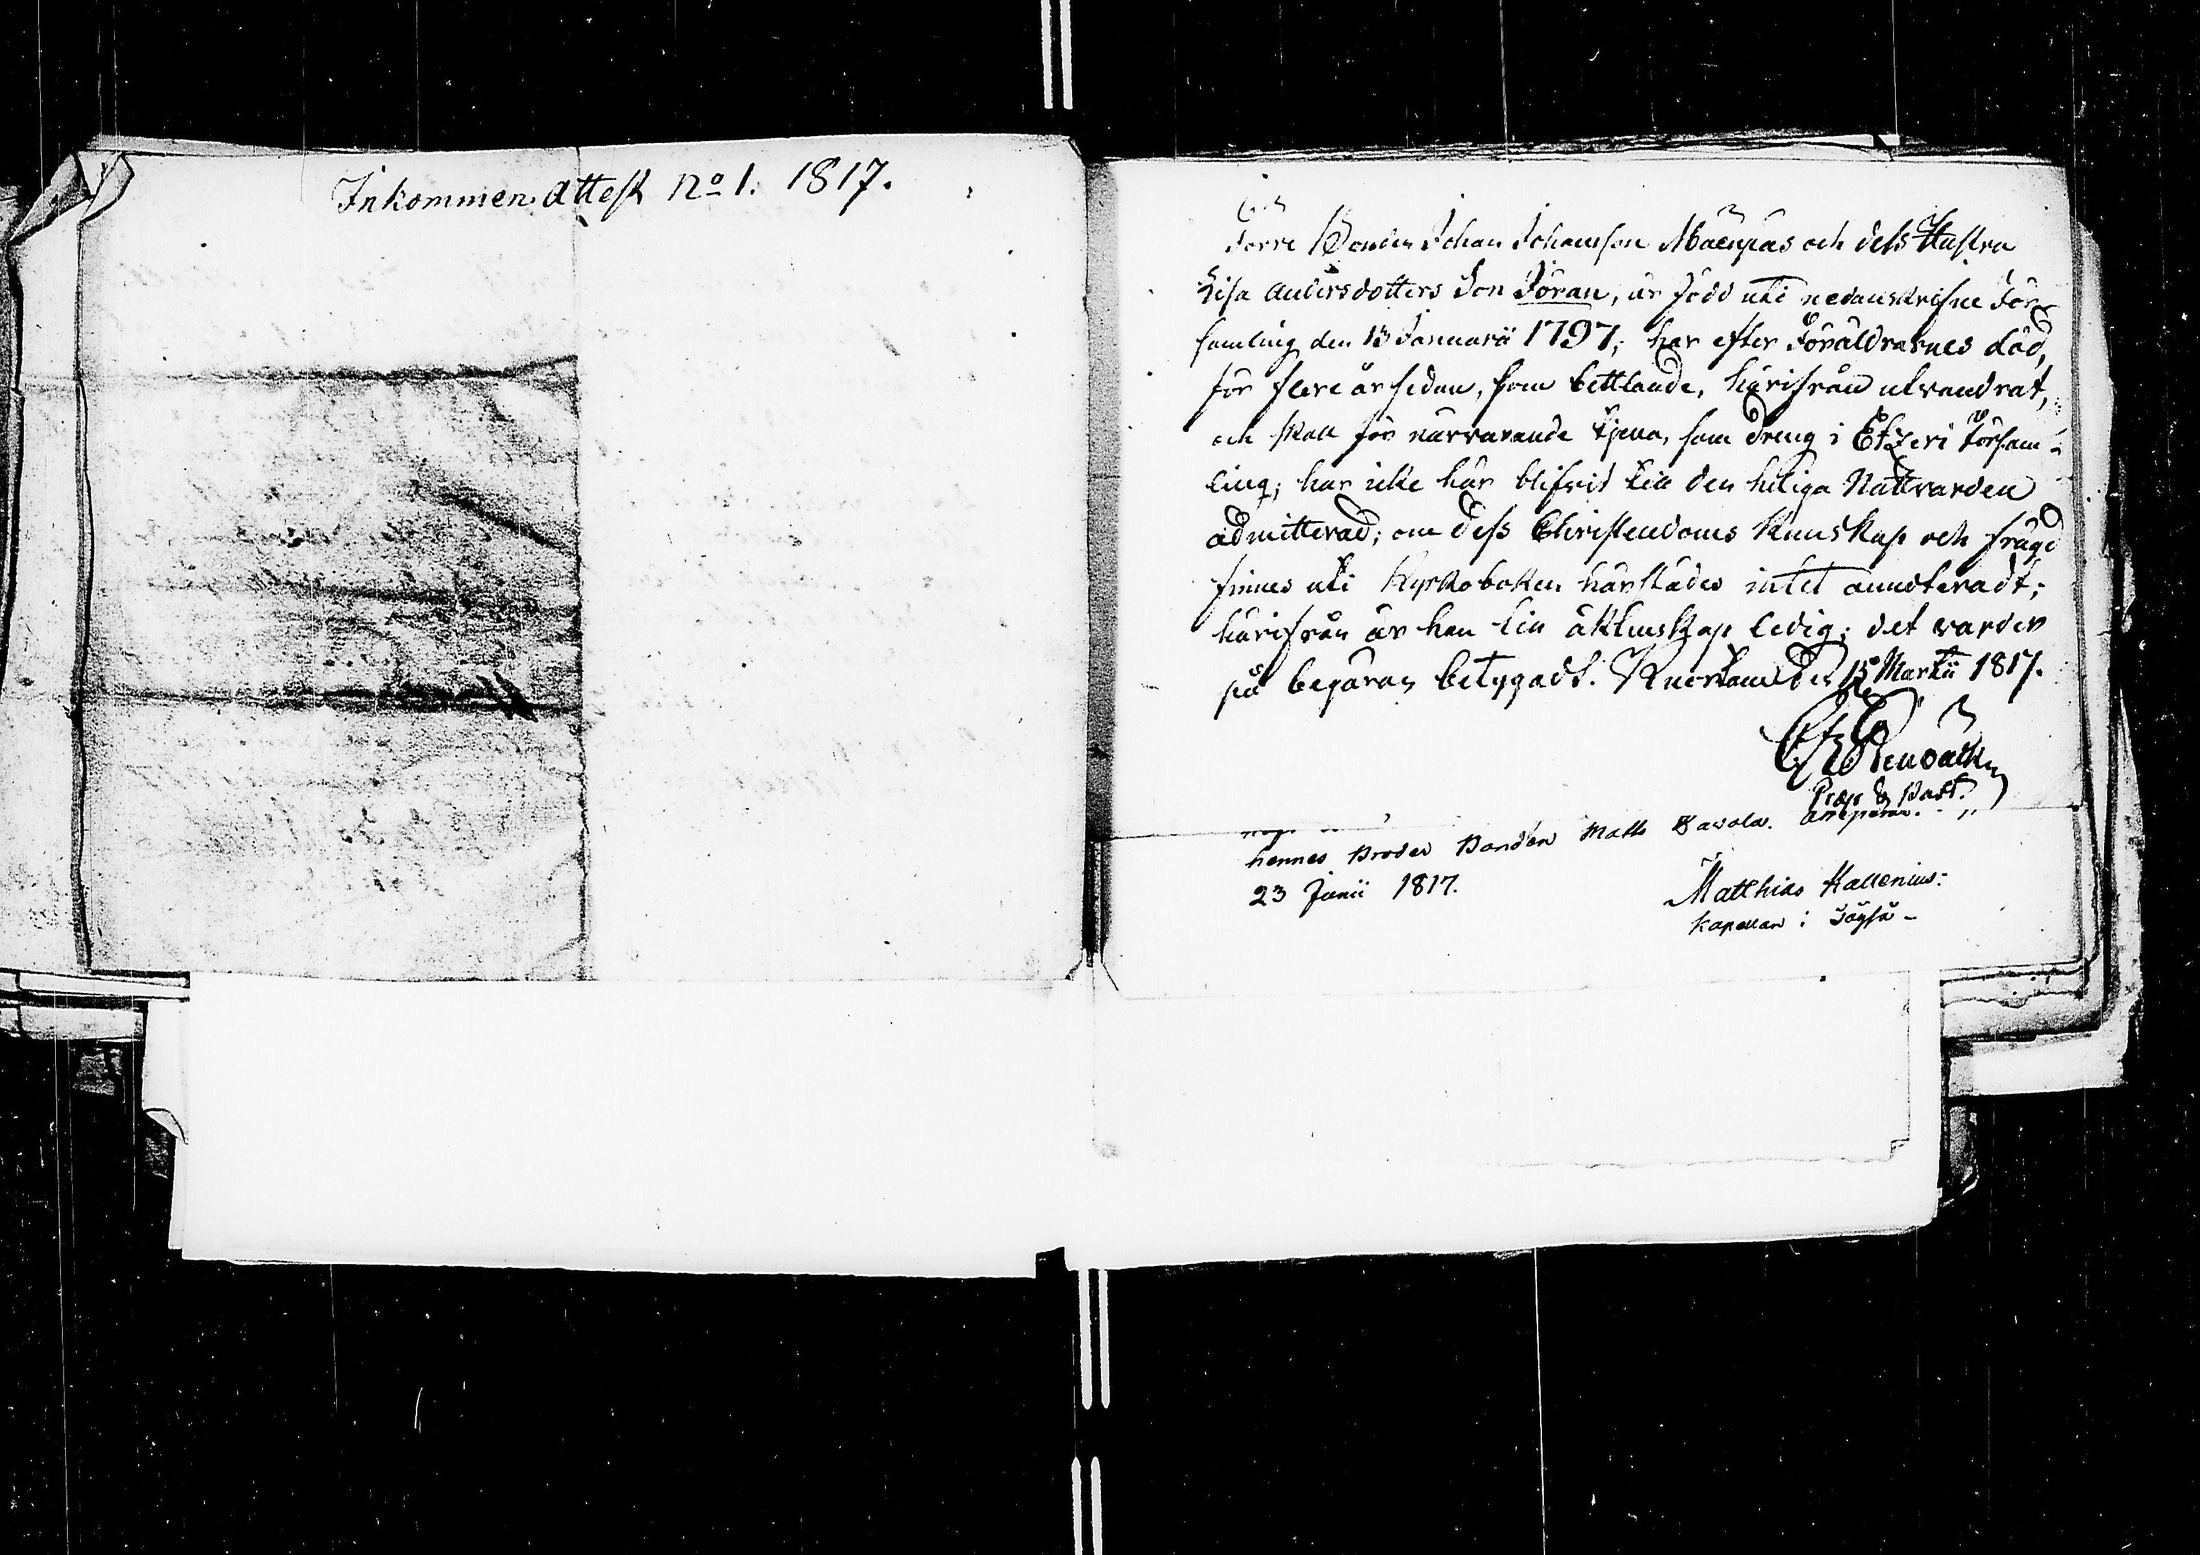 Inkommen Attest No 1. 1817.
Förre Bonden Johan Johansson Mäenpääs och dess Hustru
Lisa Andersdotters Son Jöran, är född uti nedanskrifne För-
samling den 15 Januarii 1797; har efter Föräldrarnes död,
för flere år sedan, som bettlande, härifrån utvandrat,
och skall för närvarande tjena, som dreng i Etzeri Försam-
ling; har icke här blifvit till den heliga Nattvarden
admitterad; om dess Christendoms kunskap och frägd
finnes uti Kyrkoboken härstädes intet annoteradt;
härifrån är han till äktenskap ledig; det varder
på begäran betygadt. Kuortane den 15 Martii 1817.
Præp. & Past.
hennes Broder Bonden Matts
23 Junii 1817.
Matthias Hallenius:
Kapellan i